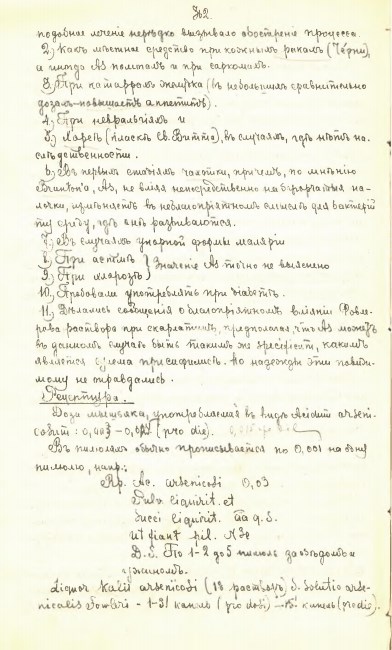 42.
подобное леченіе нерѣдко вызывало обостреніе процесса.
2) Какъ мѣстное средство при кожныхъ ракахъ (Черни),
а иногда As помогалъ и при саркомахъ.
3) При катаррахъ желудка (въ небольшихъ сравнительно
дозахъ-повышаетъ аппетитъ).
4) При невральгіяхъ и
5) Хореѣ (пляскѣ св. Витта), въ случаяхъ, гдѣ нѣтъ на-
слѣдственности.
6) Въ первыхъ стадіяхъ чахотки, причемъ, по мнѣнію
As, не вліяя непосредственно на бугорчатыя па-
лочки, измѣняетъ въ неблагопріятномъ смыслѣ для бактерій
ту среду, гдѣ онѣ развиваются.
7) Въ случаяхъ упорной формы маляріи
8) При астмѣ } Значеніе As точно не выяснено
9) При хлорозѣ
10) Пробовали употреблять при діабетѣ.
11) Дѣлались сообщенія о благопріятномъ вліяніи Фовле-
рова раствора при скарлатинѣ, предполагая, что As можетъ
въ данномъ случаѣ быть такимъ же specificum, какимъ
является при сифилисѣ. Но надежды эти повиди-
мому не оправдались.
Рецептура.
Доза мышьяка, употребляемая въ видѣ Acidum arseni-
cosum: (pro die).
Въ пилюляхъ обычно прописывается по 0,001 на одну
пилюлю, напр.:
Rp. Ac. arsenicosi 0,03
Pulv. liquirit. et
Succi liquirit. āā q. s.
Ut fiant pil. N 30
D. S. По 1-2 до 5 пилюль за обѣдомъ и
ужиномъ.
Liquor Kalii arsenicosi (1% растворъ) s. Solutio arse-
nicalis Fowleri - капель (pro dosi) - 15 капель (pro die).